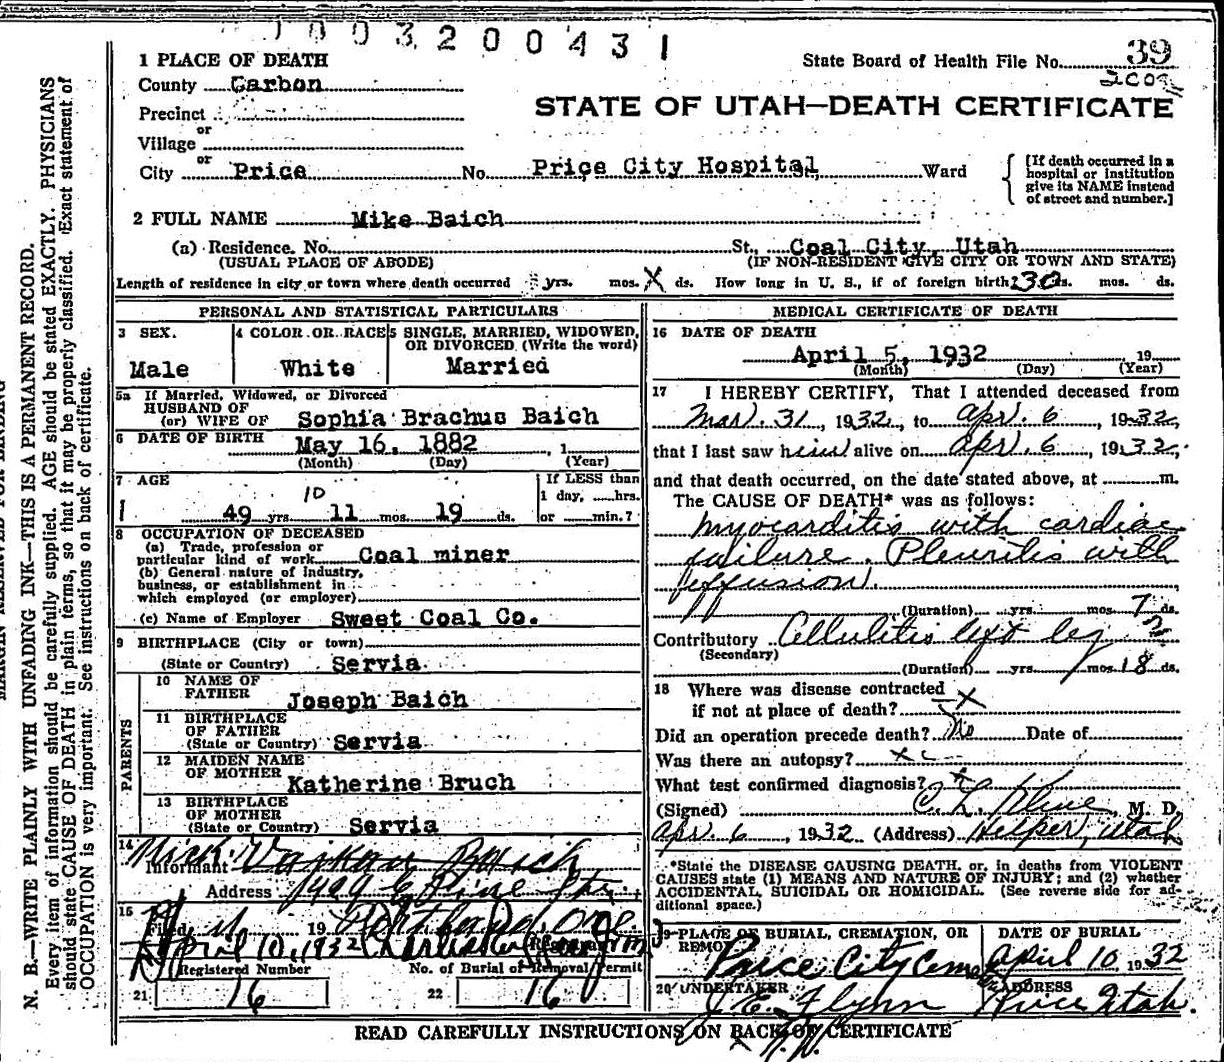 1003200431
1 PLACE OF DEATH
State Board of Health File No. 39
County Carbon
STATE OF UTAH—DEATH CERTIFICATE
Precinct
or
Village
or
City Price No. Price City Hospital Ward
[If death occurred in a
hospital or institution
give its NAME instead
of street and number.]
2 FULL NAME Mike Baich
(a) Residence. No. St., Coal City, Utah
(USUAL PLACE OF ABODE) (IF NON-RESIDENT GIVE CITY OR TOWN AND STATE)
Length of residence in city or town where death occurred yrs. mos. X ds. How long in U. S., if of foreign birth? 30 yrs. mos. ds.
PERSONAL AND STATISTICAL PARTICULARS
3 SEX.
Male
4 COLOR OR RACE
White
5 SINGLE, MARRIED, WIDOWED,
OR DIVORCED (Write the word)
Married
5a If Married, Widowed, or Divorced
HUSBAND OF
(or) WIFE OF Sophia Brachus Baich
6 DATE OF BIRTH May 16, 1882, 1
(Month) (Day) (Year)
7 AGE
10
49 yrs. 11 mos. 19 ds.
If LESS than
1 day, hrs.
or min.?
8 OCCUPATION OF DECEASED
(a) Trade, profession or
particular kind of work Coal miner
(b) General nature of Industry,
business, or establishment in
which employed (or employer)
(c) Name of Employer Sweet Coal Co.
9 BIRTHPLACE (City or town)
(State or Country) Servia
PARENTS
10 NAME OF
FATHER Joseph Baich
11 BIRTHPLACE
OF FATHER
(State or Country) Servia
12 MAIDEN NAME
OF MOTHER Katherine Bruch
13 BIRTHPLACE
OF MOTHER
(State or Country) Servia
14
Informant Baich
Address
15
Filed 19
April 10, 1932
Registered Number
No. of Burial or Removal Permit
21 16
22 16
MEDICAL CERTIFICATE OF DEATH
16 DATE OF DEATH
April 5, 1932 19
(Month) (Day) (Year)
17 I HEREBY CERTIFY, That I attended deceased from
Mar. 31, 1932, to Apr. 6, 1932,
that I last saw him alive on Apr. 6, 1932,
and that death occurred, on the date stated above, at m.
The CAUSE OF DEATH* was as follows:
Myocarditis with cardiac
failure. Pleuritis with
effusion.
(Duration) yrs. mos. 7 ds.
Contributory Cellulitis left leg
(Secondary)
(Duration) yrs. mos. 18 ds.
18 Where was disease contracted
if not at place of death? X
Did an operation precede death? No Date of
Was there an autopsy?
What test confirmed diagnosis?
(Signed) C. L. Kline, M. D.
Apr. 6, 1932 (Address) Helper, Utah
*State the DISEASE CAUSING DEATH, or, in deaths from VIOLENT
CAUSES state (1) MEANS AND NATURE OF INJURY; and (2) whether
ACCIDENTAL, SUICIDAL OR HOMICIDAL. (See reverse side for ad-
ditional space.)
19 PLACE OF BURIAL, CREMATION, OR
REMOVAL
Price City Cem
DATE OF BURIAL
April 10, 1932
20 UNDERTAKER
J. E. Flynn
ADDRESS
Price Utah.
READ CAREFULLY INSTRUCTIONS ON BACK OF CERTIFICATE
N. B.—WRITE PLAINLY WITH UNFADING INK—THIS IS A PERMANENT RECORD.
Every item of information should be carefully supplied. AGE should be stated EXACTLY. PHYSICIANS
should state CAUSE OF DEATH in plain terms, so that it may be properly classified. Exact statement of
OCCUPATION is very important. See instructions on back of certificate.